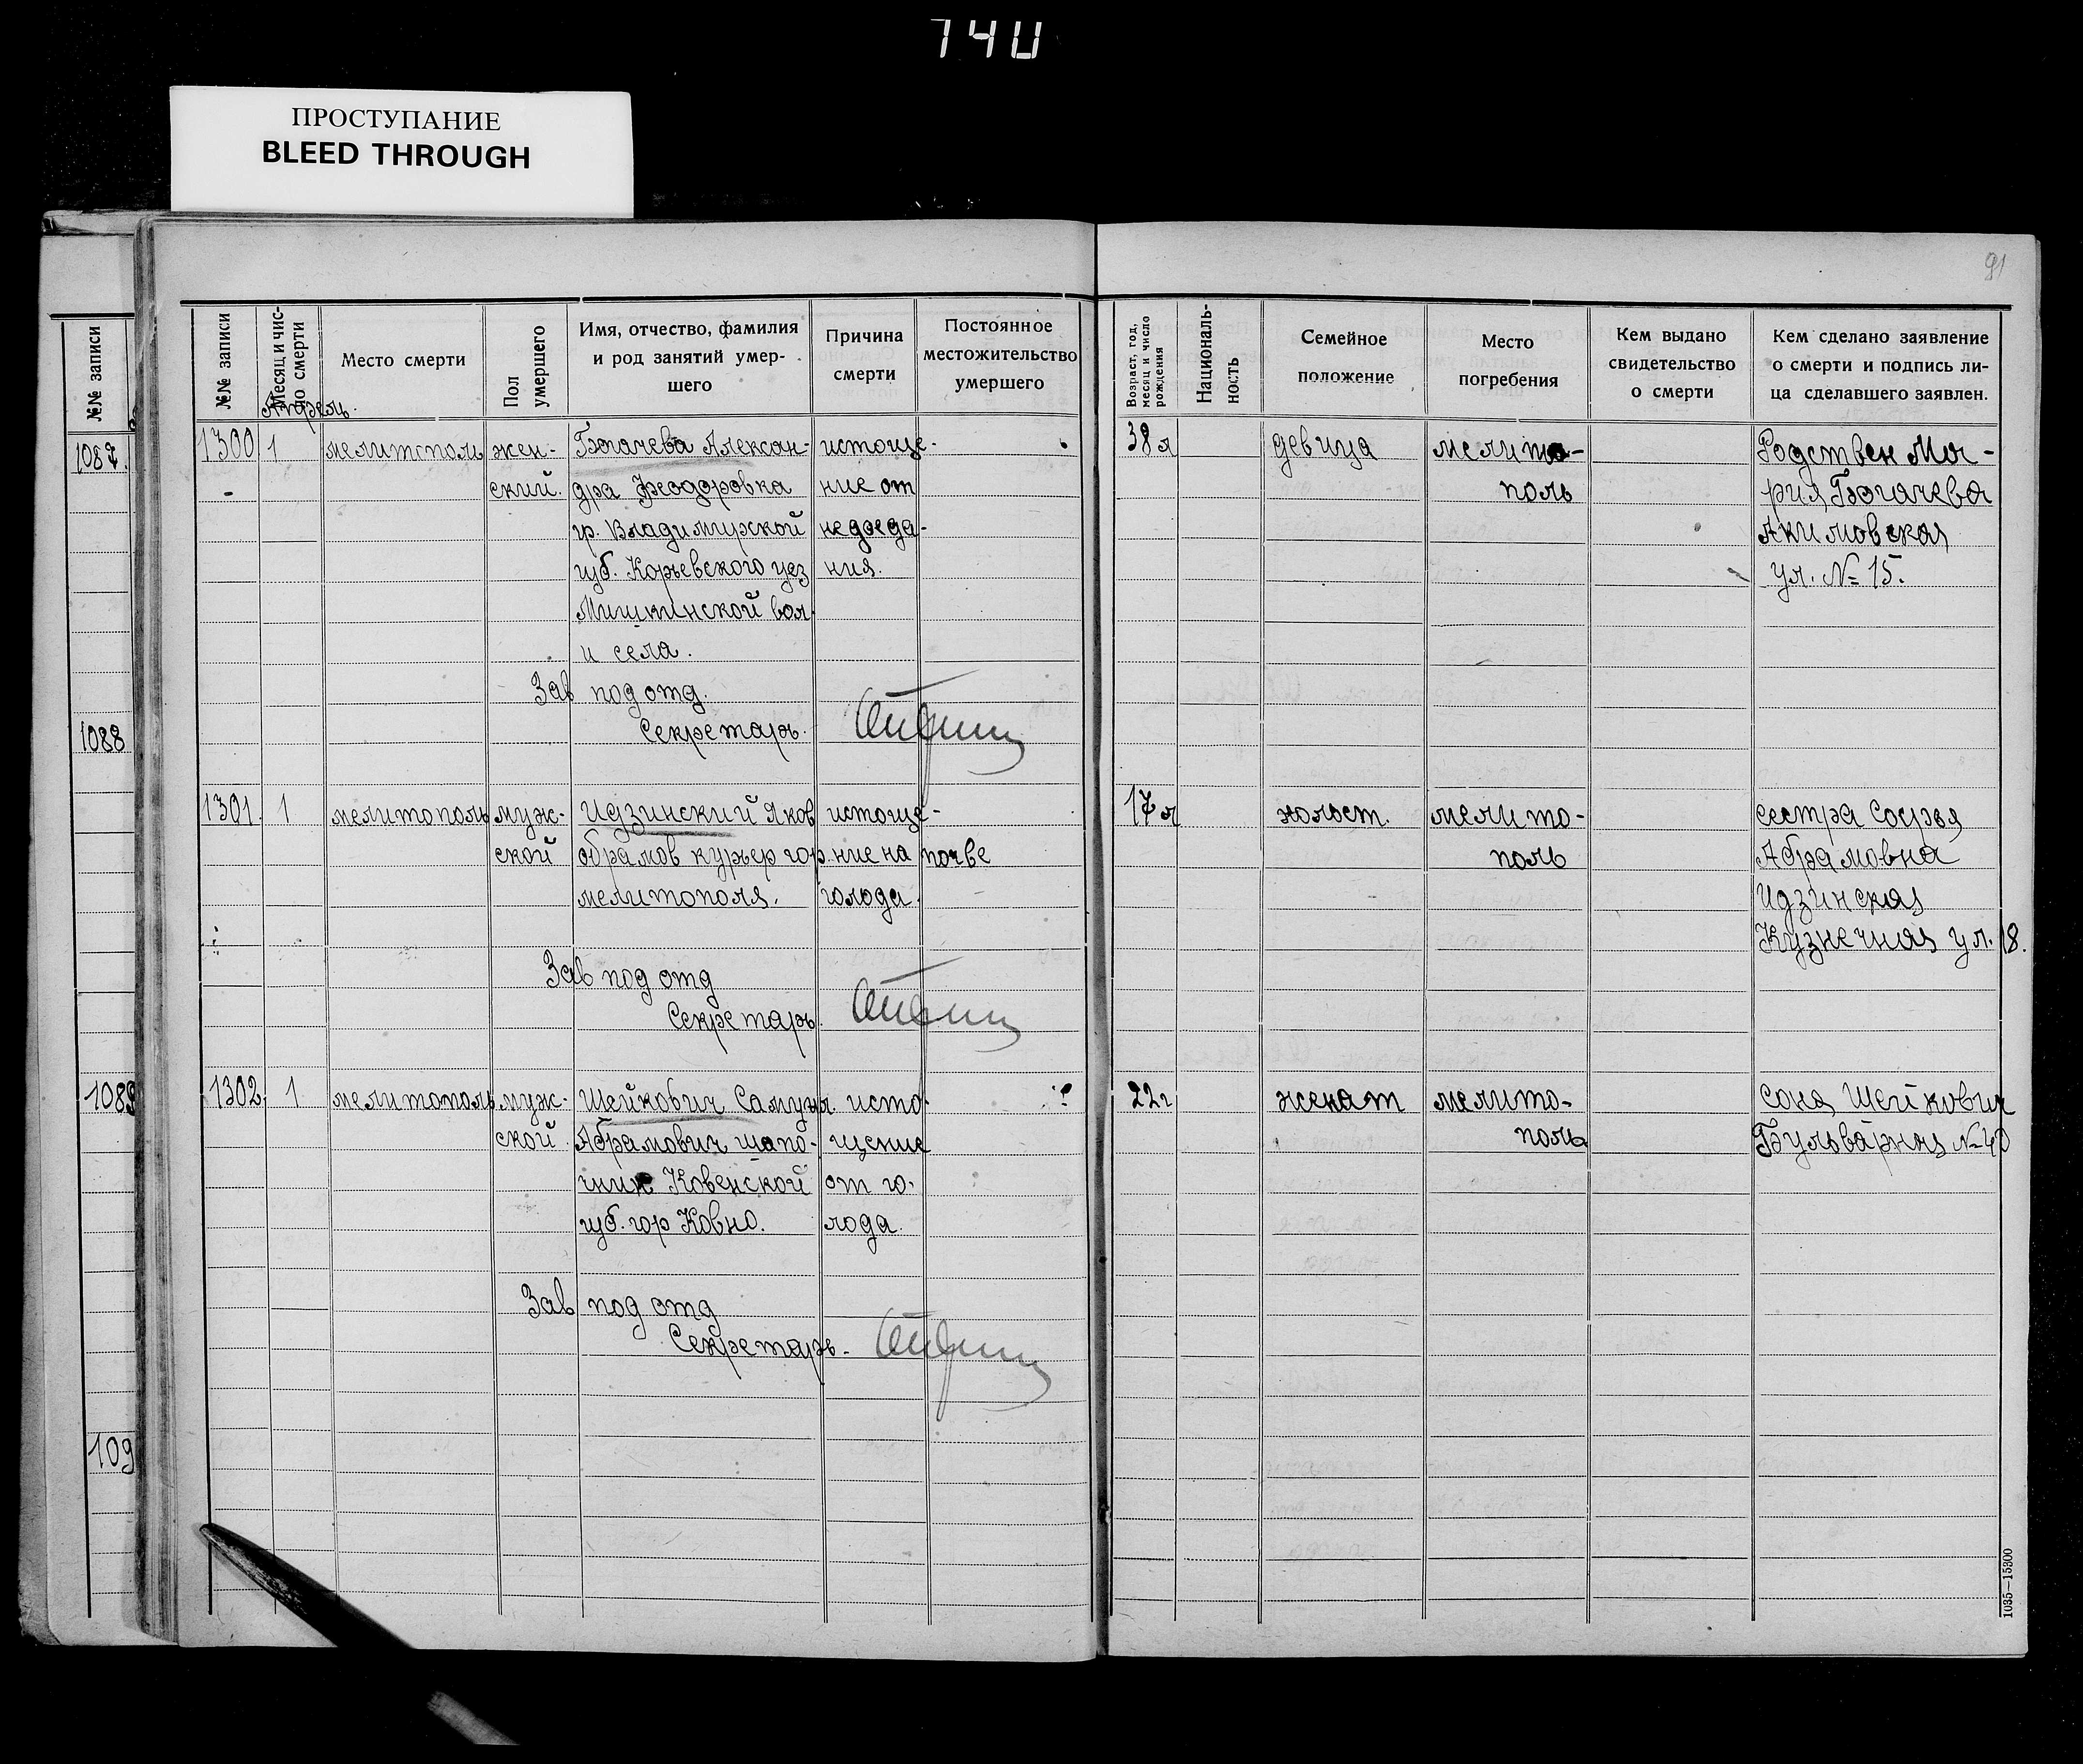 74U
ПРОСТУПАНИЕ
BLEED THROUGH
91
№№ записи
1087.
1088
1089
109
№№ записи
Месяц и чис-
ло смерти
Место смерти
Пол
умершего
Имя, отчество, фамилия
и род занятий умер-
шего
Причина
смерти
Постоянное
местожительство
умершего
Возраст, год,
месяц и число
рождения
Националь-
ность
Семейное
положение
Место
погребения
Кем выдано
свидетельство
о смерти
Кем сделано заявление
о смерти и подпись ли-
ца сделавшего заявлен.
Апрель.
1300
1
мелитополь
жен-
ский.
Богачева Алексан-
дра Феодоровка
гр. Владимирской
губ. Корьевского уез
Мишкинской вол.
и села.
истоще-
ние от
недоеда-
ния.
38 л
девица
мелито-
поль
Родствен Ма-
рия Богачева
Акимовская
ул. № 15.
Зав под отд.
Секретарь.
1301.
1
мелитополь
муж-
ской
Идзинский Яков
Абрамов курьер гор.
мелитополя.
истоще-
ние на почве
голода.
17 л
холост.
мелито-
поль
сестра Софья
Абрамовна
Идзинская
Кузнечная ул. 18.
Зав под отд
Секретарь.
1302.
1
мелитополь
муж-
ской.
Шейкович Самуил.
Абрамович шапо-
чник Ковенской
губ. гор Ковно.
исто-
щение
от го-
лода.
22 г
женат
мелито-
поль
Соня Шейкович
Бульварная № 40
Зав под отд
Секретарь.
1035—15300